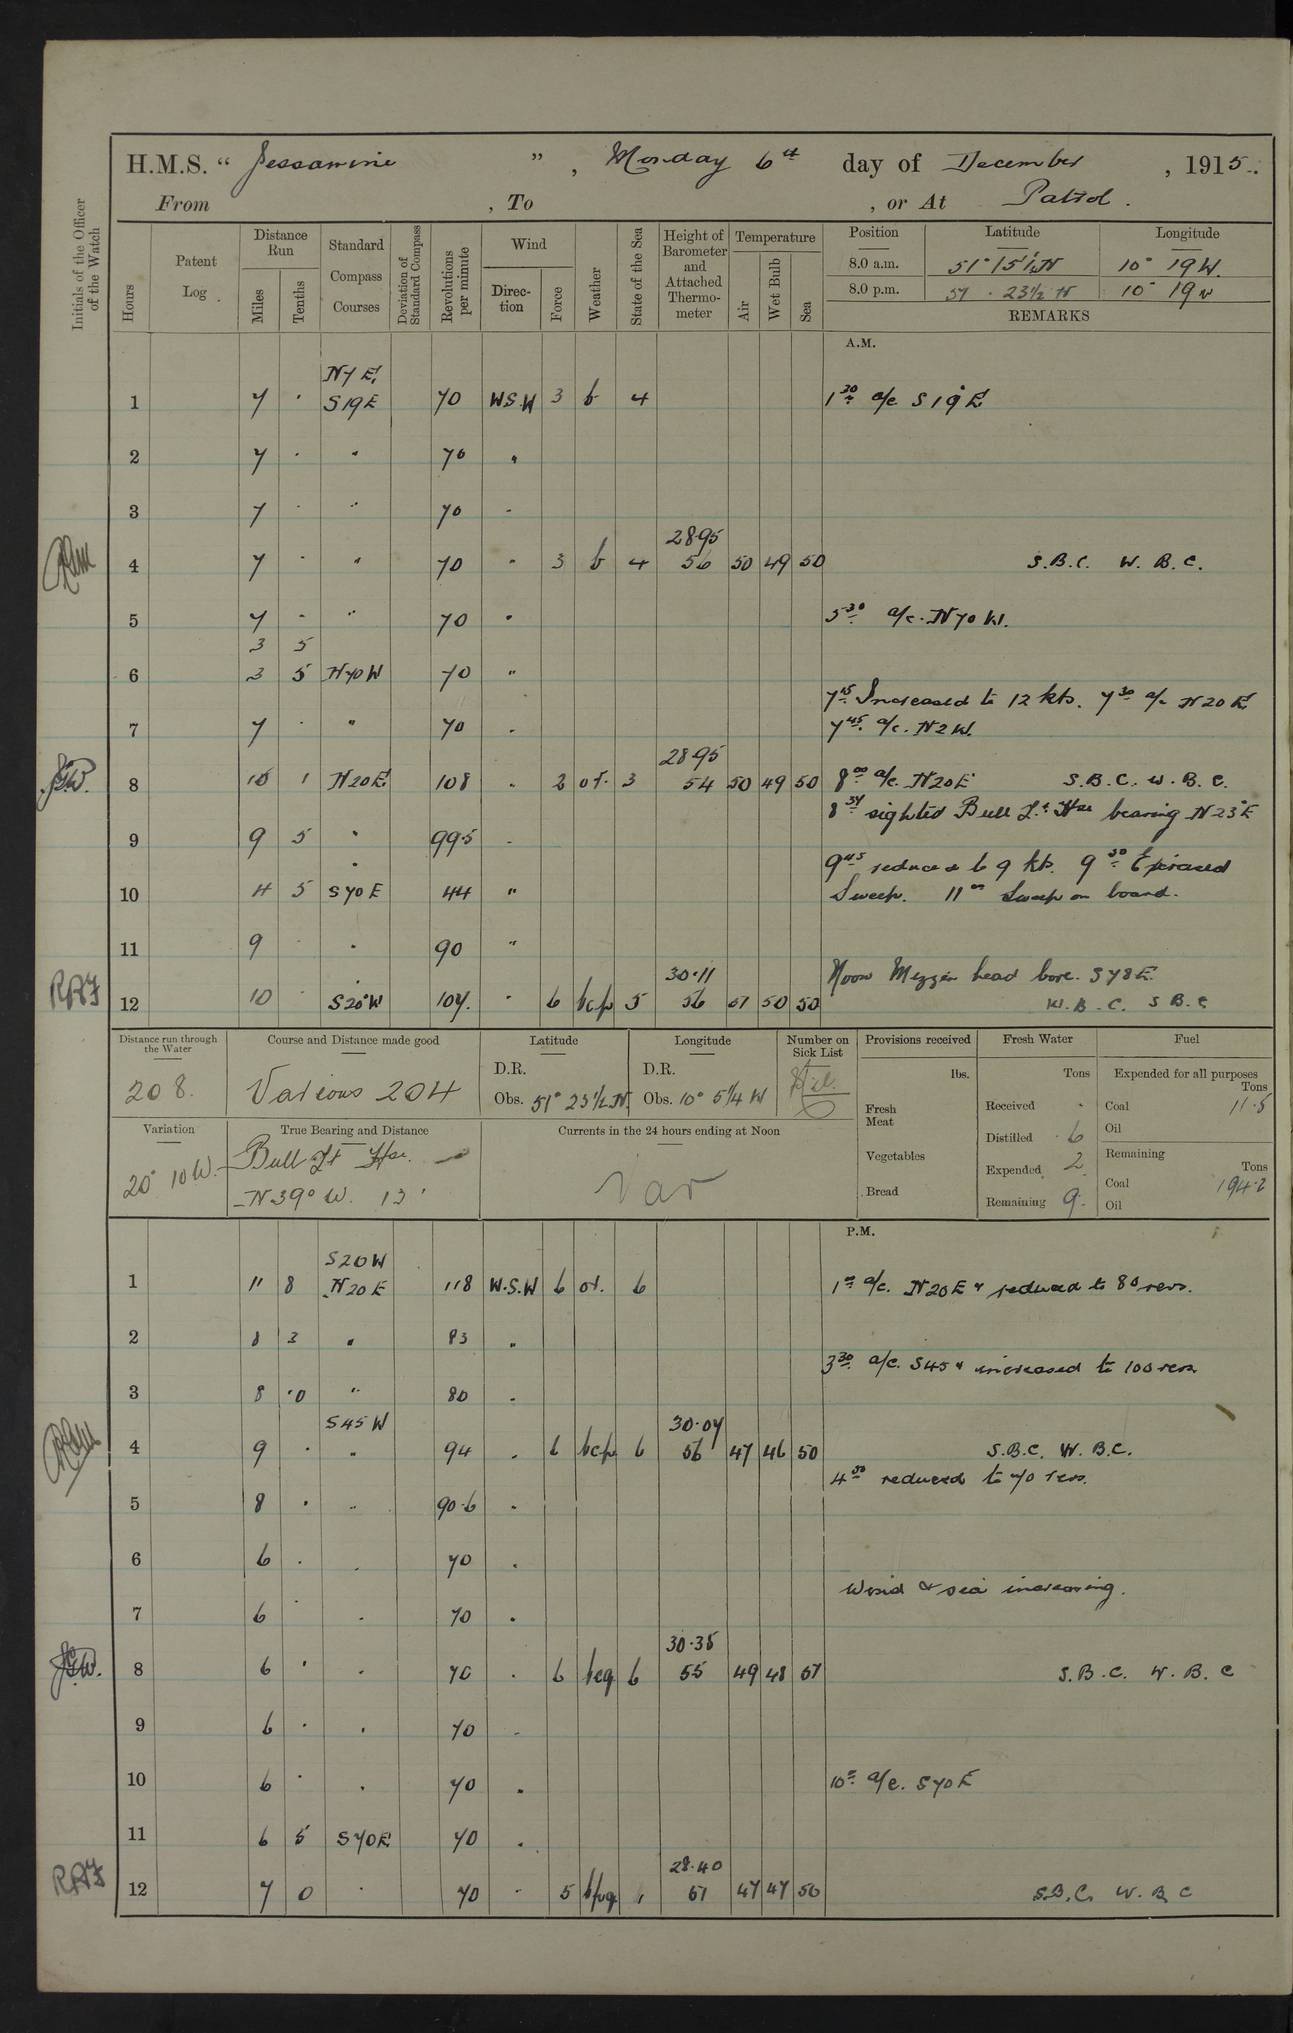 H.M.S. “ Jessamine ” , Monday 6th day of December , 1915.
From , To , or At Patrol .
Initials of the Officer of the Watch
Hours
Patent Log
Distance Run
Miles
Tenths
Standard Compass Courses
Deviation of Standard Compass
Revolutions per minute
Wind
Direction
Force
Weather
State of the Sea
Height of Barometer and Attached Thermometer
Temperature
Air
Wet Bulb
Sea
Position Latitude Longitude
8.0 a.m. 51° 15½ N 10° 19 W.
8.0 p.m. 51 . 23½ N 10° 19 W
REMARKS
A.M.
N 7 E
1 7 · S 19 E 70 WSW 3 b 4 1 30 a/c S 19 E
2 7 · " 70 "
3 7 · " 70 "
28.95
4 7 · " 70 " 3 b 4 56 50 49 50 S.B.C. W.B.C.
5 7 · " 70 " 5 30 a/c. N 70 W.
3 5
6 3 5 N 70 W 70 "
7 15 Increased to 12 kts. 7 30 a/c N 20 E
7 7 · " 70 " 7 45 a/c. N 2 W.
28.95
8 10 1 N 20 E 108 " 2 or. 3 54 50 49 50 8 00 a/c. N 20 E S.B.C. W.B.C.
8 34 sighted Bull Lt. Hse bearing N 23 E
9 9 5 " 99.5 "
9 45 reduced to 9 kts. 9 50
10 4 5 S 70 E 44 " Sweep. 11 00 Sweep on board.
11 9 · " 90 "
30.11
Noon Mizzen head bore. S 78 E.
12 10 · S 20° W 107. " 6 bcp 5 56 51 50 50 W.B.C. S.B.C
Distance run through the Water
208.
Course and Distance made good
Various 204
Latitude
D.R.
Obs. 51° 23½ N.
Longitude
D.R.
Obs. 10° 5¼ W
Number on Sick List
Nil.
Provisions received
lbs.
Fresh Meat
Vegetables
Bread
Fresh Water
Tons
Received ·
Distilled 6
Expended 2
Remaining 9.
Fuel
Expended for all purposes
Tons
Coal 11.5
Oil
Remaining
Tons
Coal 194.2
Oil
Variation
20° 10 W.
True Bearing and Distance
Bull Lt Hse.
N 39° W. 13'
Currents in the 24 hours ending at Noon
Var
P.M.
S 20 W
1 11 8 N 20 E 118 W.S.W 6 or. 6 1 00 a/c. N 20 E & reduced to 80 revs.
2 8 3 " 83 "
3 30 a/c. S 45 & increased to 100 revs
3 8 ·0 " 80 "
S 45 W 30.07
4 9 · " 94 " 6 bcp 6 56 47 46 50 S.B.C. W.B.C.
4 50 reduced to 70 revs.
5 8 · " 90.6 "
6 6 · " 70 "
Wind & sea increasing.
7 6 · " 70 "
30.35
8 6 · " 70 " 6 bcq 6 55 49 48 51 S.B.C. W.B.C
9 6 · " 70 "
10 6 · " 70 " 10 00 a/c. S 70 E
11 6 5 S 70 E 70 "
28.40
12 7 0 " 70 " 5 bpq 51 47 47 50 S.B.C. W.B.C